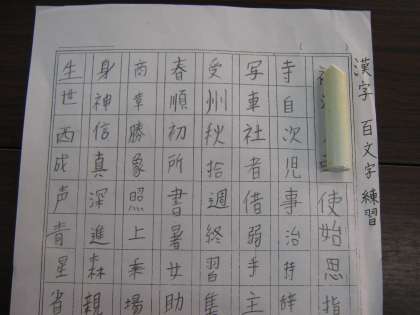 漢字 百文字 練習
使始思指
寺自次児事治持時
写車社者借弱手主
受州秋拾週終習集
春順初所書暑女助
商章勝象照上乗場
身神信真深進森親
生世西成声青星省